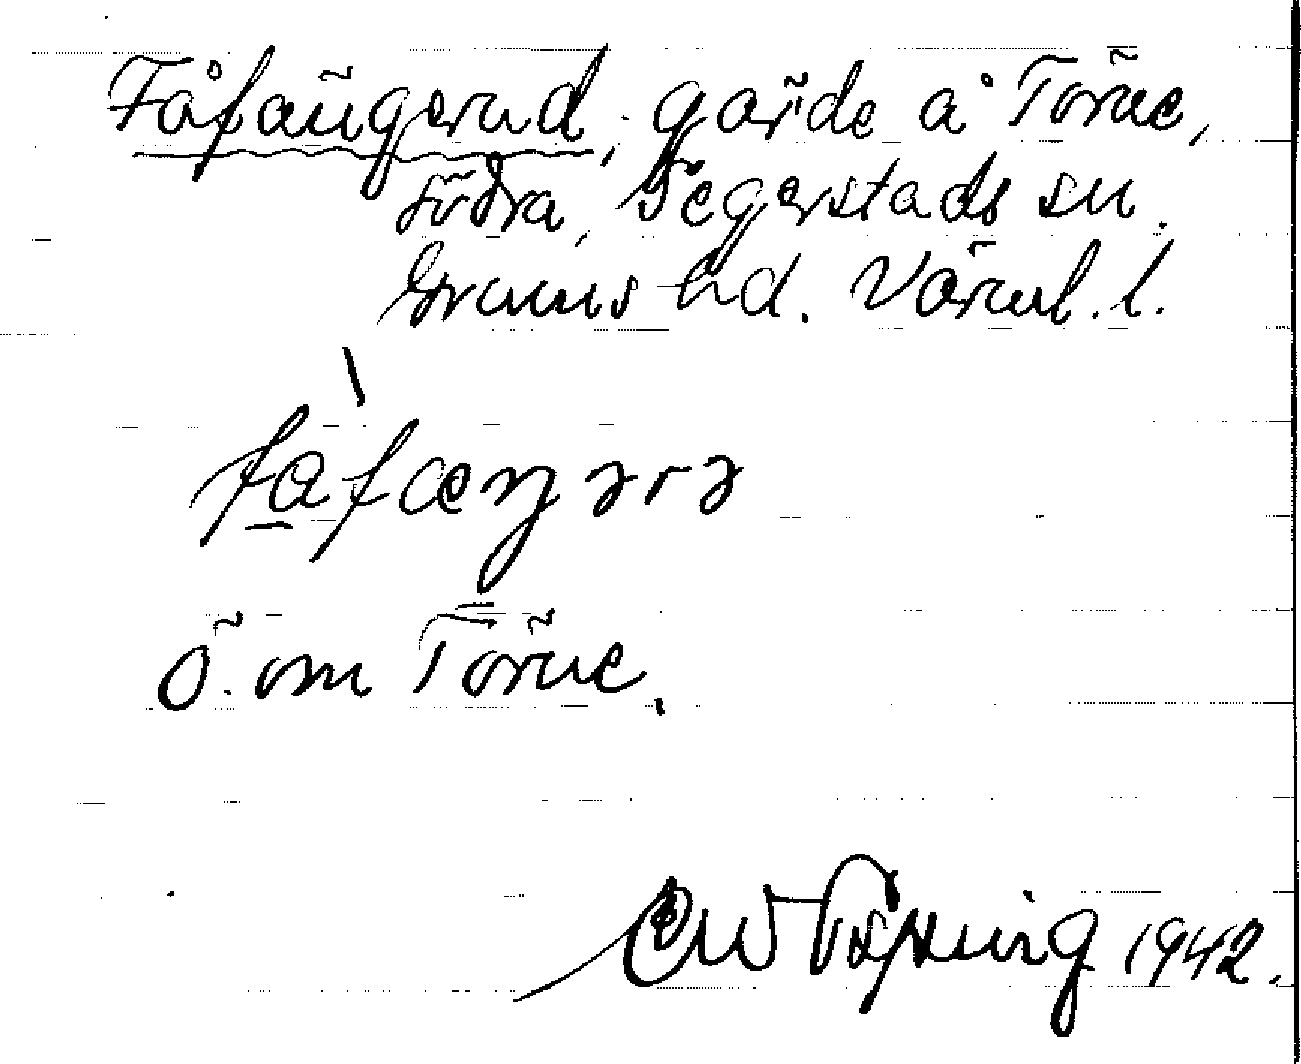 Fåfängerud, gärde å Törne,
södra, Segerstads sn.
Grums hd. Värml. l.
fa̱fæŋərə
Ö. om Törne.
1942.